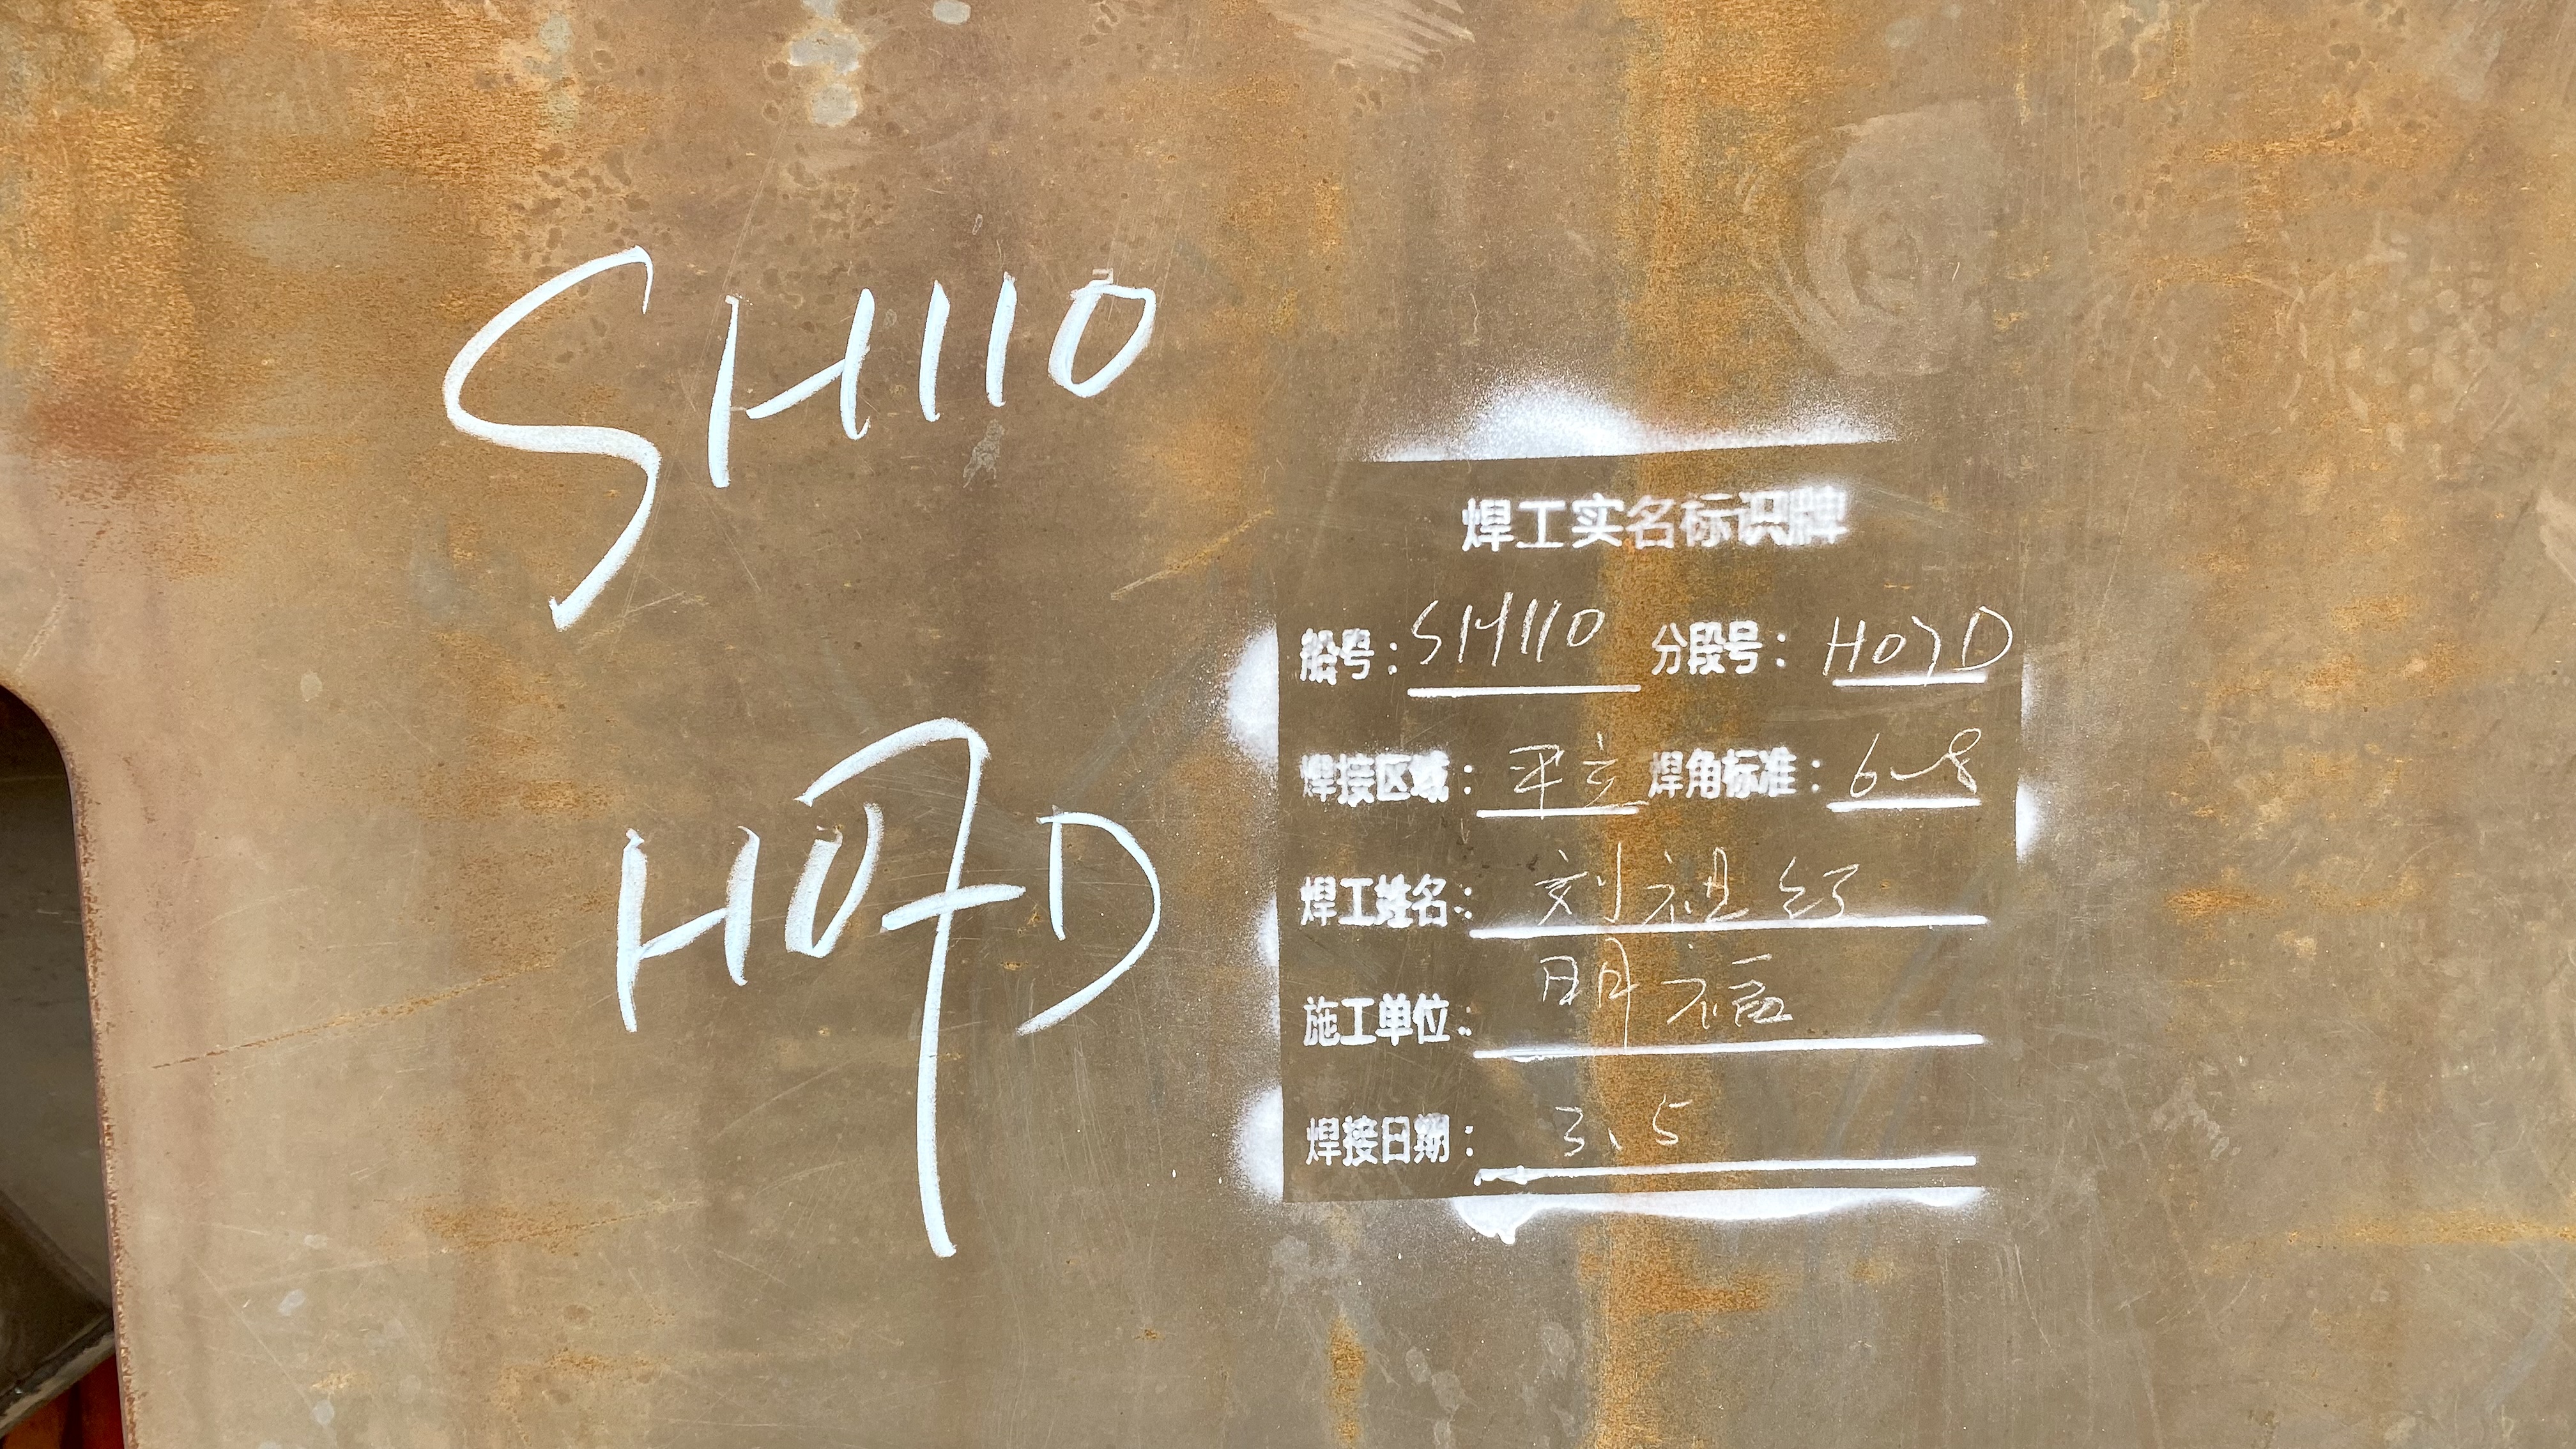 SH110
H07D
焊工实名标识牌
船号：SH110 分段号：H07D
焊接区域：平立 焊角标准：6~8
焊工姓名：刘祖红
施工单位：明福
焊接日期：3、5